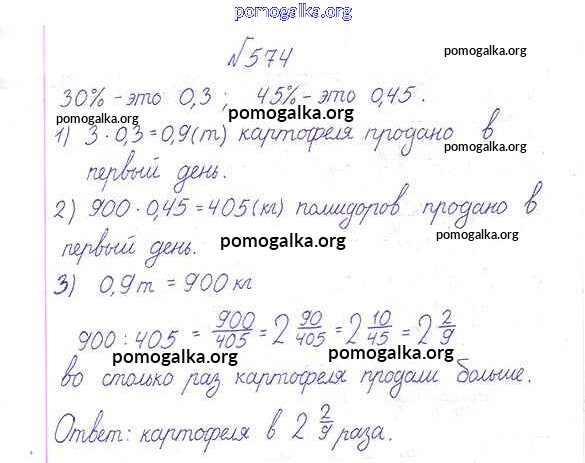 pomogalka.org
№574
pomogalka.org
30% - это 0,3 ; 45% - это 0,45.
pomogalka.org
1) 3 · 0,3 = 0,9 (т) картофеля продано в
pomogalka.org
первый день.
2) 900 · 0,45 = 405 (кг) помидоров продано в
pomogalka.org
первый день.
pomogalka.org
3) 0,9 т = 900 кг
900 : 405 = 900/405 = 2 90/405 = 2 10/45 = 2 2/9
pomogalka.org pomogalka.org
во столько раз картофеля продали больше.
Ответ: картофеля в 2 2/9 раза.